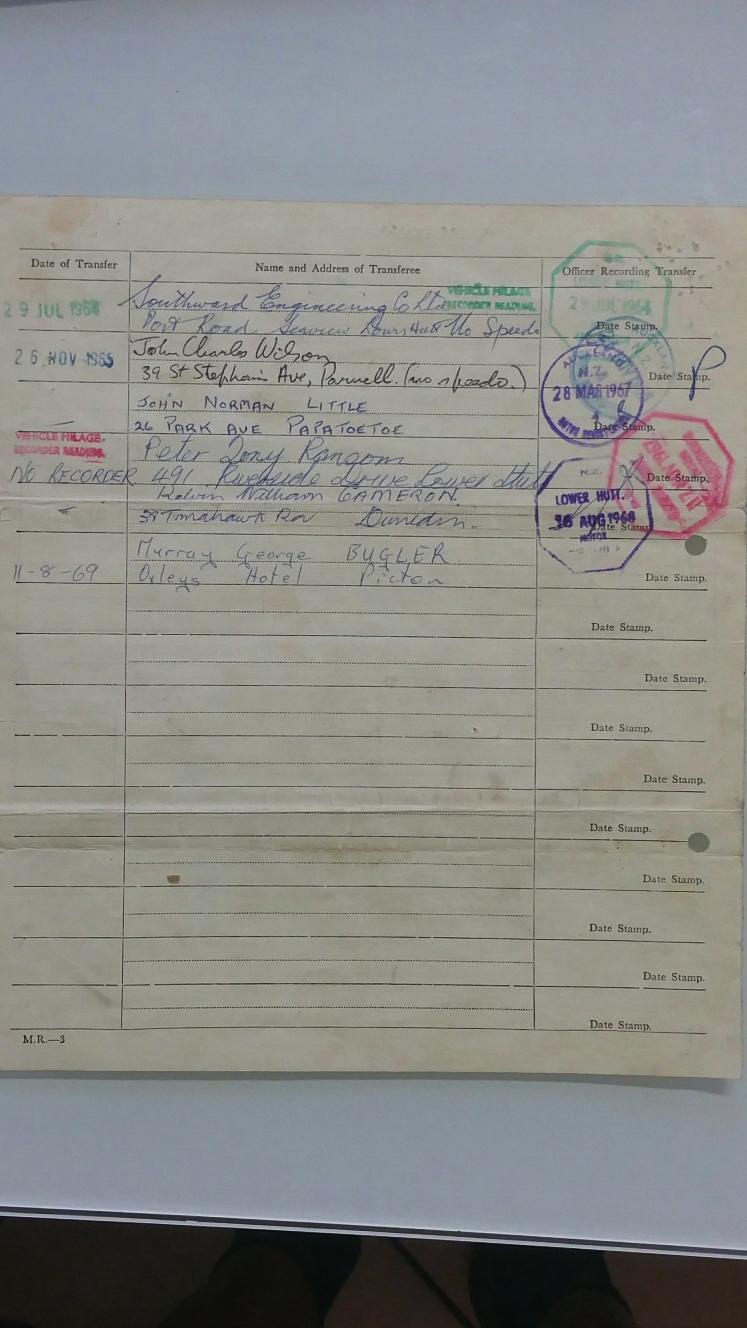 Date of Transfer Name and Address of Transferee Officer Recording Transfer
29 JUL 1964 Southward Engineering Co Ltd VEHICLE MILAGE RECORDER READING.
LOWER HUTT.
29 JUL 1964
Port Road Seaview Lower Hutt No Speedo
Date Stamp.
26 NOV 1965 John Charles Wilson
39 St Stephens Ave, Parnell. (no speedo.) Date Stamp. P
AUCKLAND
N.Z.
28 MAR 1967
JOHN NORMAN LITTLE
26 PARK AVE PAPATOETOE Date Stamp.
VEHICLE MILAGE RECORDER READING. Peter Tony Ransom
NO RECORDER 491 Riverside Drive Lower Hutt Date Stamp.
Kelvin William CAMERON.
N.Z.
LOWER HUTT.
16 AUG 1968
MOTOR
38 Tomahawk Rd Dunedin. Date Stamp.
Murray George BUGLER
11-8-69 Oxleys Hotel Picton Date Stamp.
Date Stamp.
Date Stamp.
Date Stamp.
Date Stamp.
Date Stamp.
Date Stamp.
Date Stamp.
Date Stamp.
Date Stamp.
M.R.—3